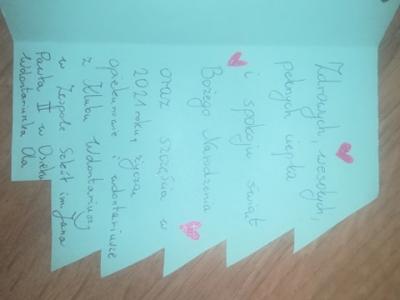 Zdrowych, wesołych,
pełnych ciepła
i spokoju świąt
Bożego Narodzenia
oraz szczęścia w
2021 roku życzą
opiekunowie i wolontariusze
z Klubu Wolontariuszy
w Zespole Szkół im. Jana
Pawła II w Osieku
Wolontariuszka Ola